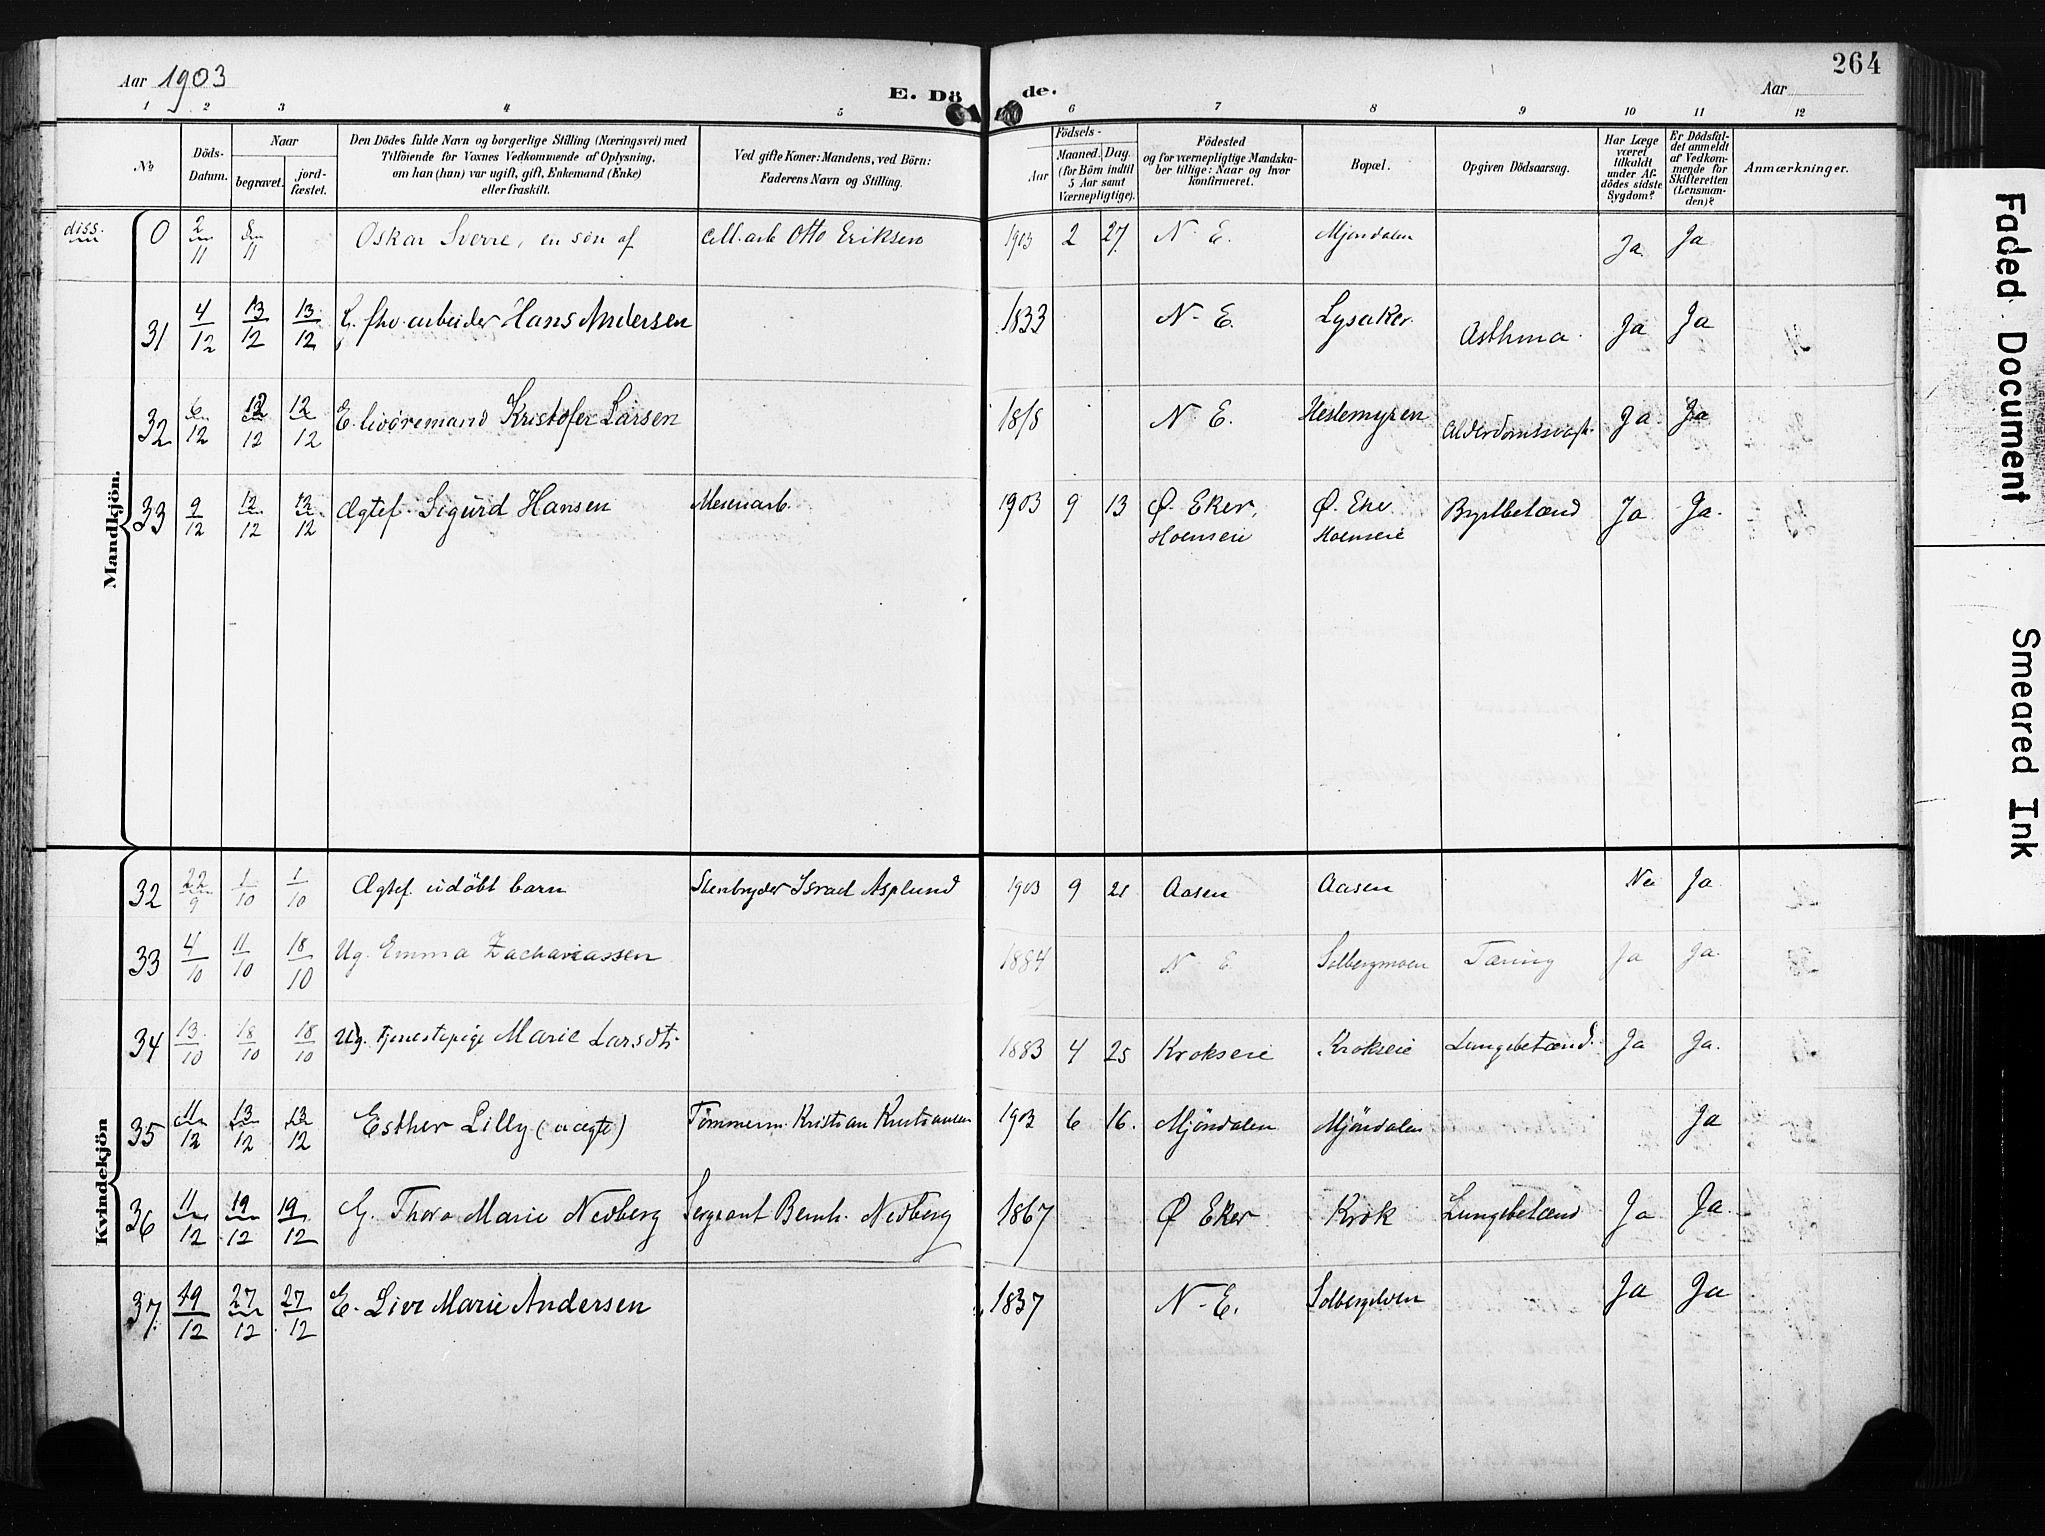 264
Aar 1903
E. Döde.
Aar
1 2 3 4 5 6 7 8 9 10 11 12
No.
Döds-Datum.
Naar
begravet.
jord-fæstet.
Den Dödes fulde Navn og borgerlige Stilling (Næringsvei) med
Tilföiende for Voxnes Vedkommende af Oplysning,
om han (hun) var ugift, gift, Enkemand (Enke)
eller fraskilt.
Ved gifte Koner: Mandens, ved Börn:
Faderens Navn og Stilling.
Födsels-
Aar
Maaned. Dag.
(for Börn indtil
5 Aar samt
Værnepligtige).
Födested
og for værnepligtige Mandska-
ber tillige: Naar og hvor
konfirmeret.
Bopæl.
Opgiven Dödsaarsag.
Har Læge
været
tilkaldt
under Af-
dödes sidste
Sygdom?
Er Dödsfal-
det anmeldt
af Vedkom-
mende for
Skifteretten
(Lensman-
den)?
Anmærkninger.
Mandkjön.
diss. 0 2/11 8/11 Oskar Sverre, en sön af Otto Eriksen 1903 2 27 N. E. Mjöndalen Ja Ja
31 4/12 13/12 13/12 arbeider Hans Andersen 1833 N. E. Lysaker Asthma. Ja Ja
32 6/12 12/12 12/12 E. livöremand Kristofer Larsen 1818 N. E. Hestemyren Alderdomssvagh. Ja Ja
33 9/12 12/12 12/12 Ægtef. Sigurd Hansen 1903 9 13 Ø. Eker, Ø. Eker Brystbetænd Ja Ja.
Hoenseie Hoenseie
Kvindekjön
32 22/9 1/10 1/10 Ægtef. udöbt barn Stenbryder Israel Asplund 1903 9 21 Aasen Aasen Nei Ja
33 4/10 11/10 18/10 Ug. Emma Zachariassen 1884 N. E. Solbergmoen Tæring Ja Ja.
34 13/10 18/10 18/10 Ug. tjenestepige Marie Larsdt. 1883 4 25 Krokseie Krokseie Lungebetænd. Ja Ja.
35 11/12 13/12 13/12 Esther Lilly (uægte) Tömmerm. Kristian Kristiansen 1903 6 16. Mjöndalen Mjöndalen Ja
36 11/12 19/12 19/12 G. Thora Marie Nedberg Sergeant Bernh. Nedberg 1867 Ø Eker Krok Lungebetænd Ja Ja.
37 19/12 27/12 27/12 E. Live Marie Andersen 1837 N. E. Solbergelven Ja Ja
Faded Document
Smeared Ink